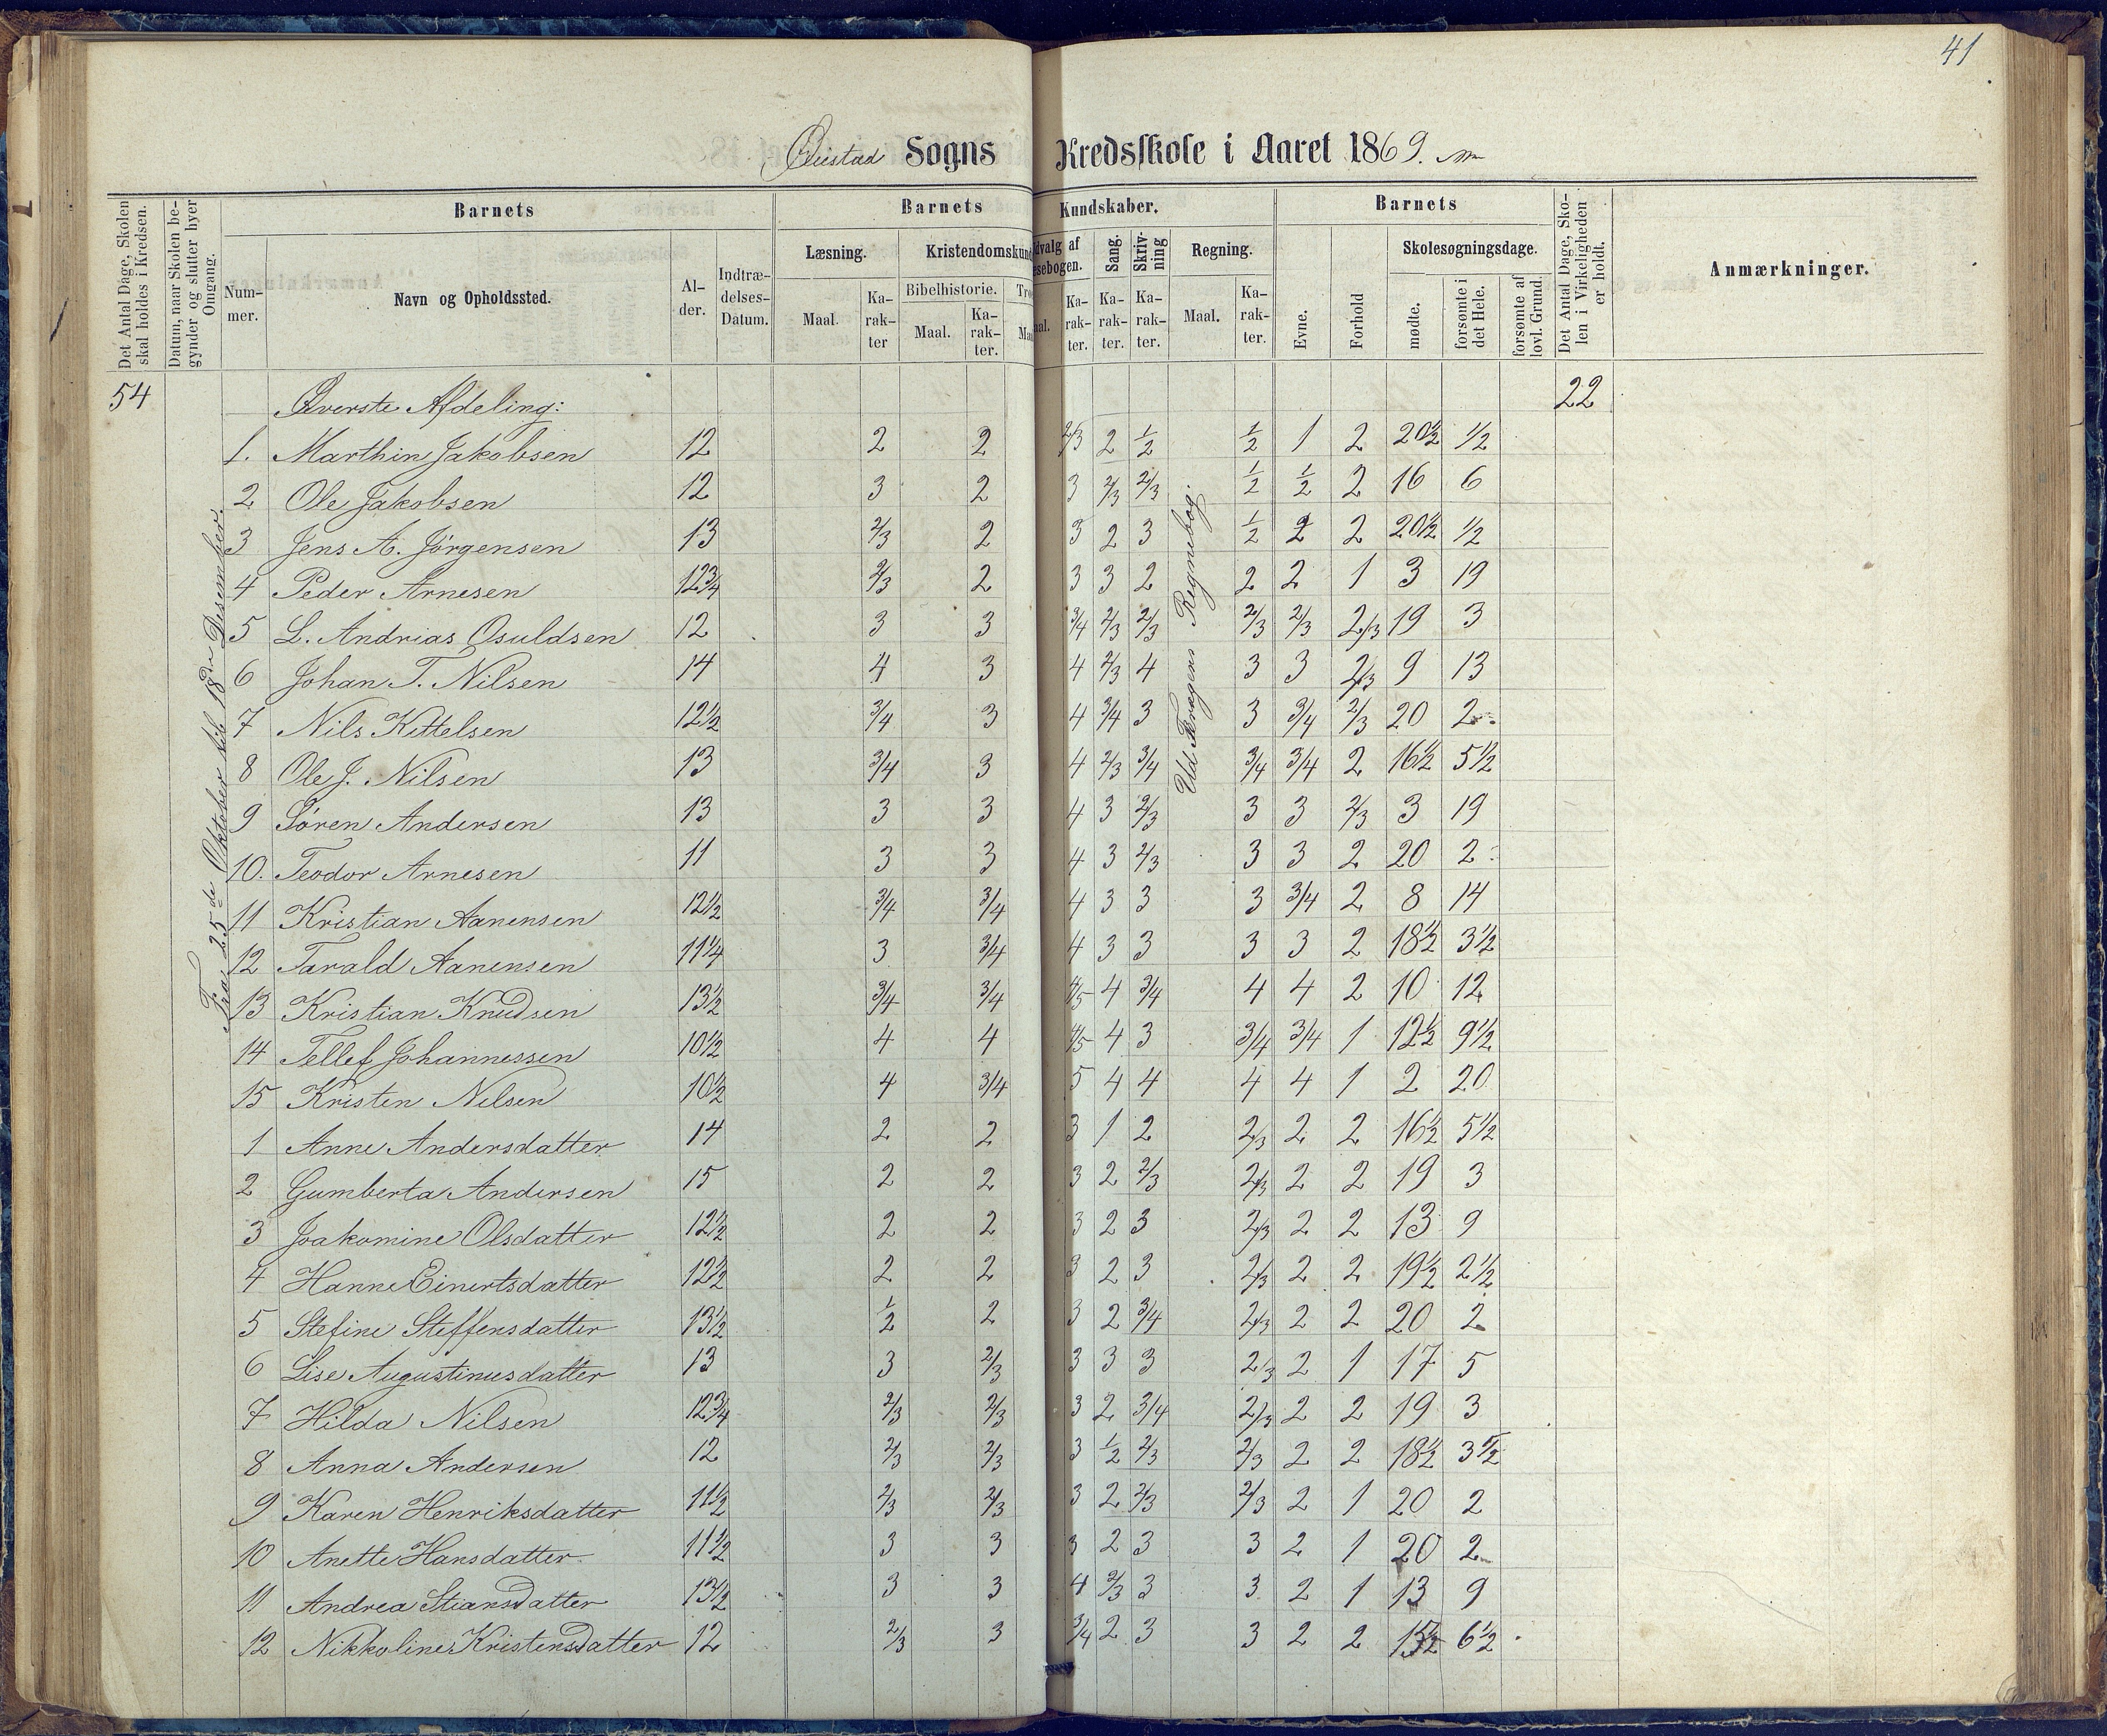 41
Øiestad Sogns Kredsskole i Aaret 1869.
Det Antal Dage, Skolen skal holdes i Kredsen.
Datum, naar Skolen begynder og slutter hver Omgang.
Barnets
Nummer.
Navn og Opholdssted.
Alder.
Indtrædelses-Datum.
Barnets Kundskaber.
Læsning.
Maal.
Karakter
Kristendomskund
Bibelhistorie.
Maal.
Karakter.
Tro
Maa
dvalg af
sebogen.
aal.
Karakter.
Sang.
Karakter.
Skrivning
Karakter.
Regning.
Maal.
Karakter.
Barnets
Evne.
Forhold
Skolesøgningsdage.
mødte.
forsømte i det Hele.
forsømte af lovl. Grund.
Det Antal Dage, Skolen i Virkeligheden er holdt.
Anmærkninger.
54 Øverste Afdeling: 22
Fra 25de Oktober til 18de Desember.
Regnebog.
1. Marthin Jakobsen 12 2 2 2/3 2 1/2 1/2 1 2 20 1/2 1/2
2 Ole Jakobsen 12 3 2 3 2/3 2/3 1/2 1/2 2 16 6
3 Jens A. Jørgensen 13 2/3 2 3 2 3 1/2 2 2 20 1/2 1/2
4 Peder Arnesen 12 3/4 2/3 2 3 3 2 2 2 1 3 19
5 L. Andrias Osuldsen 12 3 3 3/4 2/3 2/3 2/3 2/3 2/3 19 3
6 Johan T. Nilsen 14 4 3 4 2/3 4 3 3 2/3 9 13
7 Nils Kittelsen 12 1/2 3/4 3 4 3/4 3 3 3/4 2/3 20 2
8 Ole J. Nilsen 13 3/4 3 4 2/3 3/4 3/4 3/4 2 16 1/2 5 1/2
9 Søren Andersen 13 3 3 4 3 2/3 3 3 2/3 3 19
10. Teodor Arnesen 11 3 3 4 3 2/3 3 3 2 20 2
11 Kristian Aanensen 12 1/2 3/4 3/4 4 3 3 3 3/4 2 8 14
12 Tarald Aanensen 11 1/4 3 3/4 4 3 3 3 3 2 18 1/2 3 1/2
13 Kristian Knudsen 13 1/2 3/4 3/4 4/5 4 3/4 4 4 2 10 12
14 Tellef Johannessen 10 1/2 4 4 4/5 4 3 3/4 3/4 1 12 1/2 9 1/2
15 Kristen Nilsen 10 1/2 4 3/4 5 4 4 4 4 1 2 20
1 Anne Andersdatter 14 2 2 3 1 2 2/3 2 2 16 1/2 5 1/2
2 Gumberta Andersen 15 2 2 3 2 2/3 2/3 2 2 19 3
3 Joakomine Olsdatter 12 1/2 2 2 3 2 3 2/3 2 2 13 9
4 Hanne Einertsdatter 12 1/2 2 2 3 2 3 2/3 2 2 19 1/2 2 1/2
5 Stefine Steffensdatter 13 1/2 1/2 2 3 2 3/4 2/3 2 2 20 2
6 Lise Augustinusdatter 13 3 2/3 3 3 3 2/3 2 1 17 5
7 Hilda Nilsen 12 3/4 2/3 2/3 3 2 3/4 2/3 2 2 19 3
8 Anna Andersen 12 2/3 2/3 3 1/2 2/3 2/3 2 2 18 1/2 3 1/2
9 Karen Henriksdatter 11 1/2 2/3 2/3 3 2 2/3 2/3 2 1 20 2
10 Anette Hansdatter 11 1/2 3 3 3 2 3 3 2 1 20 2
11 Andrea Stiansdatter 13 1/2 3 3 4 2/3 3 3 2 1 13 9
12 Nikkoline Kristensdatter 12 2/3 3 3/4 2 3 3 2 2 15 1/2 6 1/2